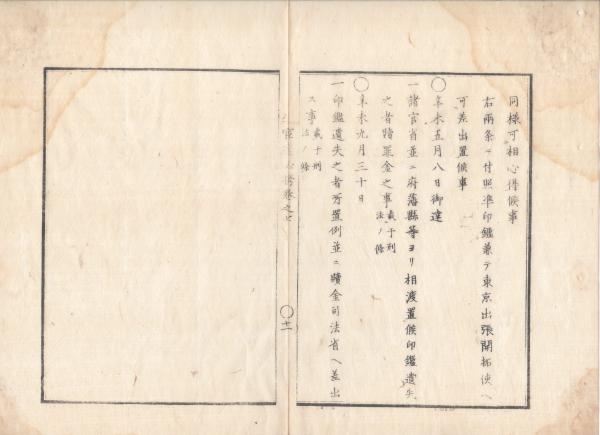 同様可相心得候事
右兩条ニ付照準印鑑兼テ東京出張開拓使へ
可差出置候事
〇辛未五月八日御達
一諸官省並ニ府藩縣等ヨリ相渡置候印鑑遺失
之者贖罪金之事 載于刑法ノ條
〇辛未九月三十日
一印鑑遺失之者所置例並ニ贖金司法省へ差出
ス事 載于刑法ノ條
心得卷之七
〇十一